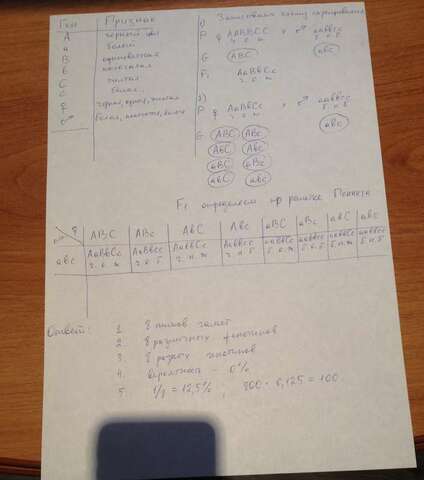 Ген Признак
A чёрный цвет
a белый
B
b
C
c белая
♀
♂
1) Записываем схему скрещивания
P ♀ AABBCC × ♂ aabbcc
ч. о. ж б. н. б
G ABC abc
F₁ AaBbCc
ч. о. ж
2)
P ♀ AaBbCc × ♂ aabbcc
ч. о. ж б. н. б
G ABC ABc abc
AbC Abc
aBC aBc
abC abc
F₂ определяем по решётке Пеннета
♀ ABC ABc AbC Abc aBC aBc abC abc
♂
abc AaBbCc AaBbcc AabbCc Aabbcc aaBbCc aaBbcc aabbCc aabbcc
ч. о. ж ч. о. б ч. н. ж ч. н. б б. о. ж б. о. б б. н. ж б. н. б
Ответ: 1. 8 типов гамет
2. 8 различных фенотипов
3. 8 разных генотипов
4. вероятность – 0%
5. 1/8 = 12,5% , 800 · 0,125 = 100